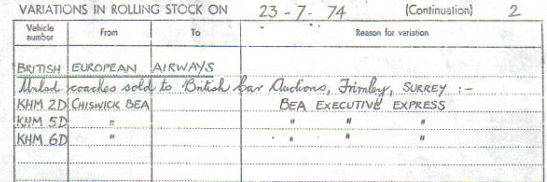 VARIATIONS IN ROLLING STOCK ON 23-7-74 (Continuation) 2
Vehicle number From To Reason for variation
BRITISH EUROPEAN AIRWAYS
coaches sold to British Car Auctions, Frimley, SURREY :-
KHM 2D CHISWICK BEA BEA EXECUTIVE EXPRESS
KHM 5D " " " "
KHM 6D " " " "